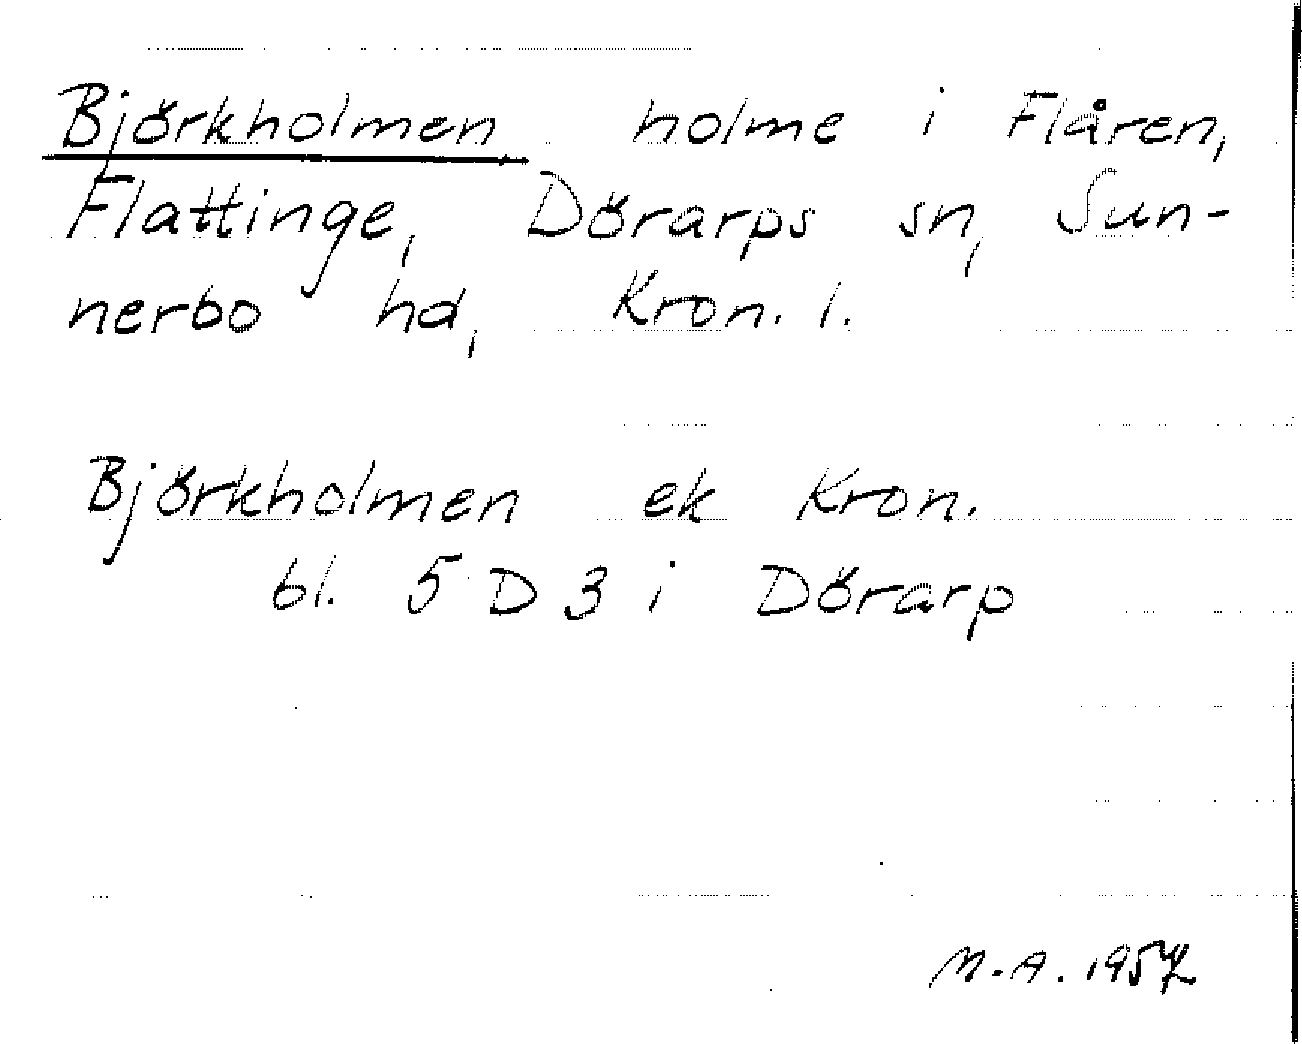 Björkholmen, holme i Flåren,
Flattinge, Dörarps sn, Sun-
nerbo hd, Kron. l.
Björkholmen ek Kron.
bl. 5 D 3 i Dörarp
M.A. 1957